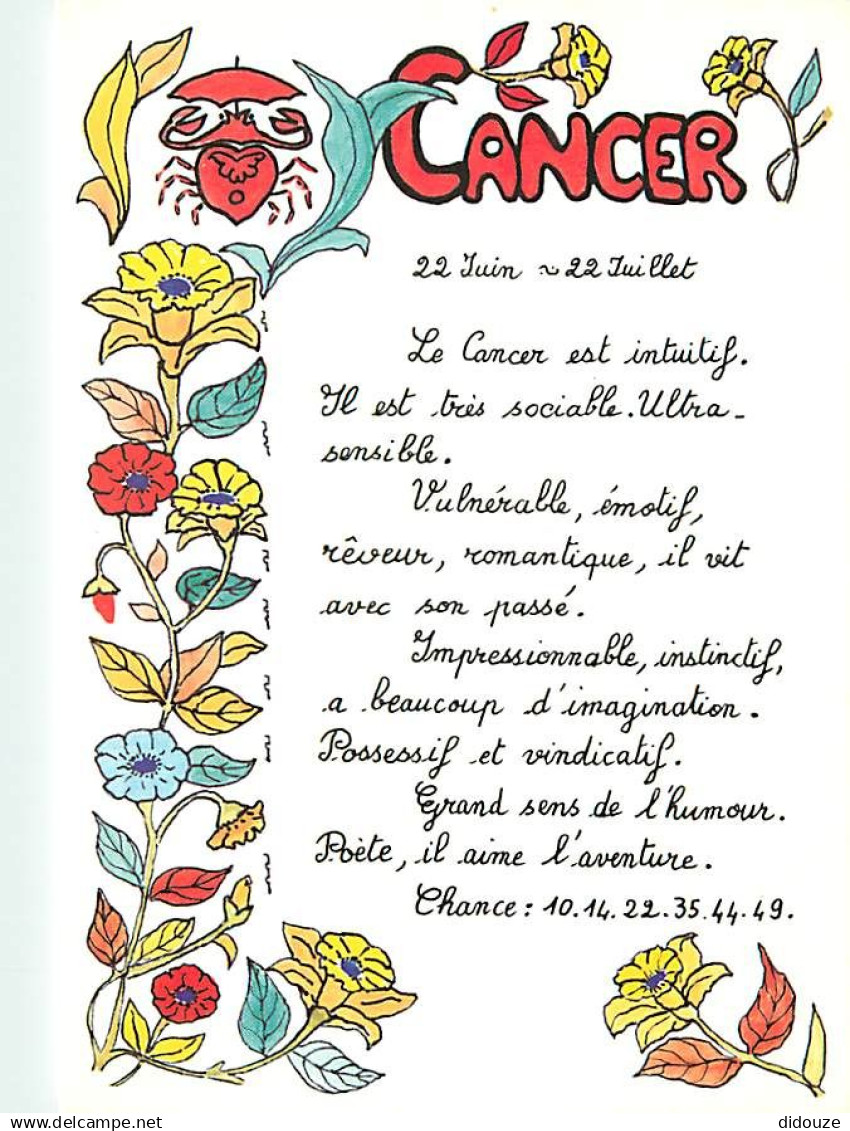 CANCER
22 Juin ~ 22 Juillet
Le Cancer est intuitif.
Il est très sociable. Ultra-
sensible.
Vulnérable, émotif,
rêveur, romantique, il vit
avec son passé.
Impressionnable, instinctif,
a beaucoup d'imagination.
Possessif et vindicatif.
Grand sens de l'humour.
Poète, il aime l'aventure.
Chance : 10.14.22.35.44.49.
delcampe.net
didouze